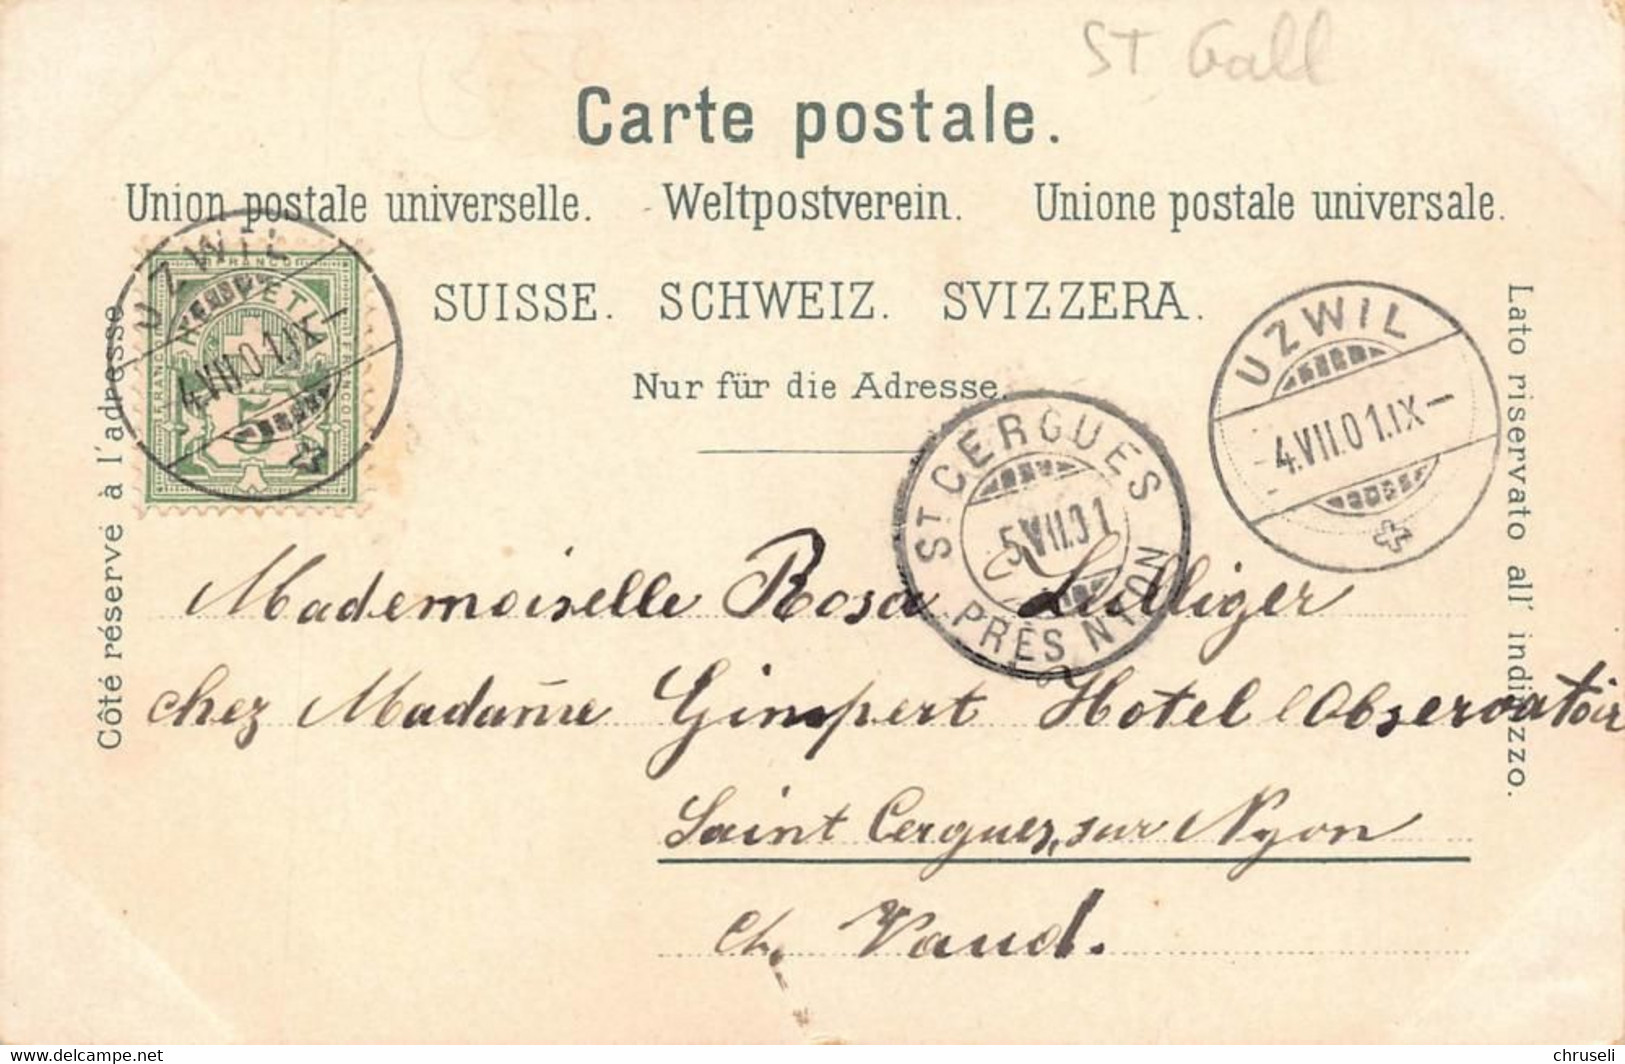 ST Gall
Carte postale.
Union postale universelle. Weltpostverein. Unione postale universale.
SUISSE. SCHWEIZ. SVIZZERA.
Nur für die Adresse.
Côté réservé à l'adresse
Lato riservato all' indirizzo.
FRANCO
HELVETIA
FRANCO
FRANCO
5
UZWIL
4.VII.01.IX-
UZWIL
4.VII.01.IX-
ST CERGUES
5.VII.01
PRÈS NYON
Mademoiselle Rosa Lulliger
chez Madame Gimpert Hotel Observatoir
Saint Cergues, sur Nyon
Ct. Vaud.
https://www.delcampe.net
chruseli